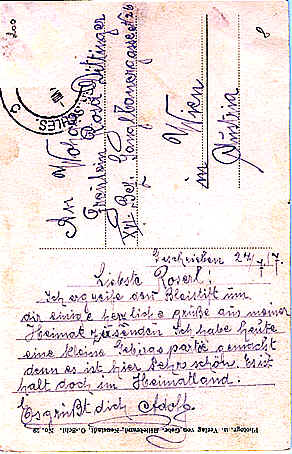 An Wohlg.
Fräulein Rosa Dittinger
XII. Bez.
Wien
in Austria
Geschrieben 24/7/7.
Liebste Roserl!
Ich ergreife den Bleistift um
dir einige herzliche grüße aus meiner
Heimat zusenden Ich habe heute
eine kleine Gebirgspartie gemacht
denn es ist hier sehr schön. Es ist
halt doch im Heimatland.
Es grüßt dich Adolf.
Photogr. u. Verlag von Gebr. Hildebrand, Neustadt, O.-Schl. No. 29